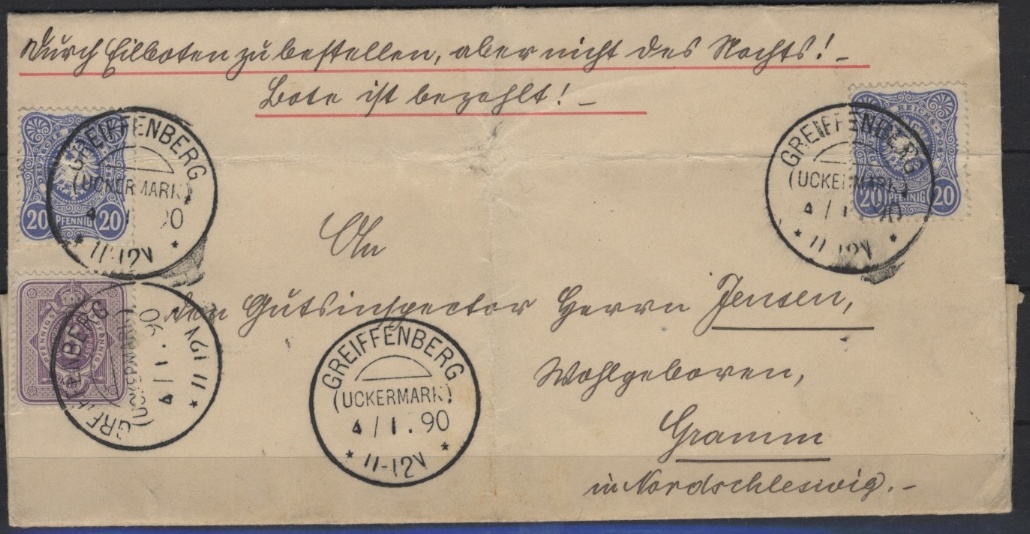 Durch Eilboten zu bestellen, aber nicht des Nachts! –
Bote ist bezahlt! –
20 PFENNIG 20
GREIFFENBERG
(UCKERMARK)
4/1.90
* 11-12V *
20 PFENNIG 20
GREIFFENBERG
(UCKERMARK)
4/1.90
* 11-12V *
An
den Gutsinspector Herrn Jensen,
Wohlgeboren,
Gramm
in Nordschleswig. –
PFENNIG
GREIFFENBERG
(UCKERMARK)
4/1.90
* 11-12V *
GREIFFENBERG
(UCKERMARK)
4/1.90
* 11-12V *